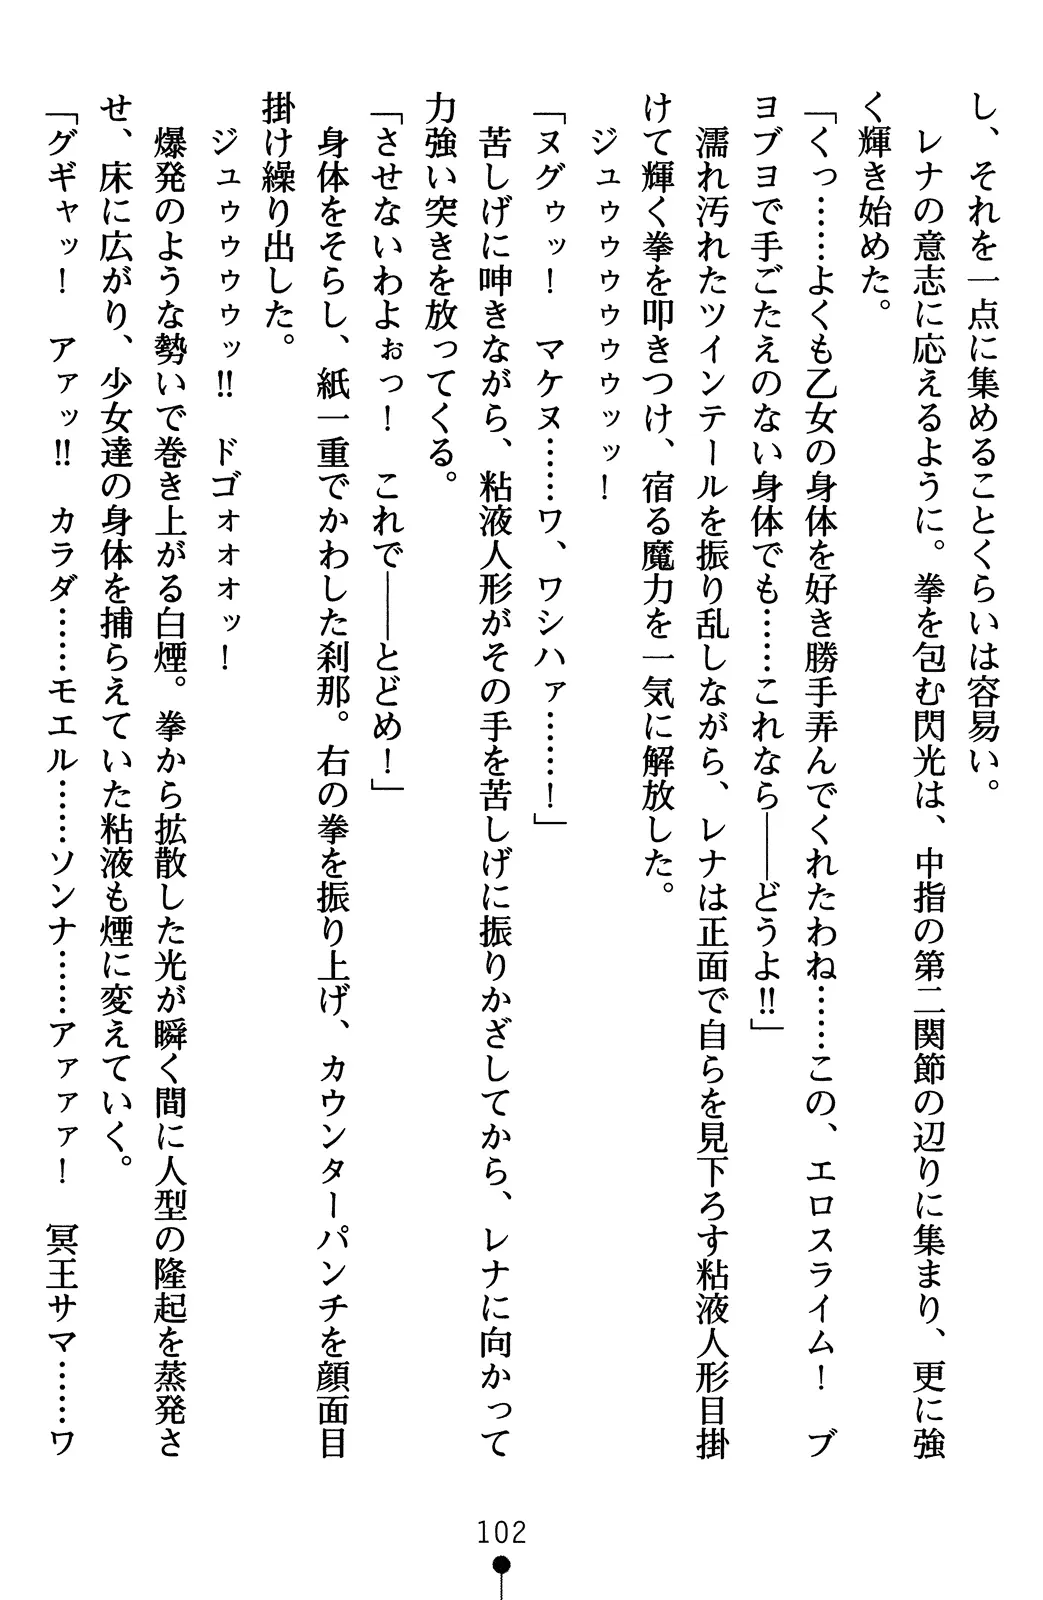 し、それを一点に集めることくらいは容易い。
　レナの意志に応えるように。拳を包む閃光は、中指の第二関節の辺りに集まり、更に強
く輝き始めた。
「くっ……よくも乙女の身体を好き勝手弄んでくれたわね……この、エロスライム！　ブ
ヨブヨで手ごたえのない身体でも……これなら――どうよ‼」
　濡れ汚れたツインテールを振り乱しながら、レナは正面で自らを見下ろす粘液人形目掛
けて輝く拳を叩きつけ、宿る魔力を一気に解放した。
　ジュゥゥゥゥゥッッ！
「ヌグゥッ！　マケヌ……ワ、ワシハァ……！」
　苦しげに呻きながら、粘液人形がその手を苦しげに振りかざしてから、レナに向かって
力強い突きを放ってくる。
「させないわよぉっ！　これで――とどめ！」
　身体をそらし、紙一重でかわした刹那。右の拳を振り上げ、カウンターパンチを顔面目
掛け繰り出した。
　ジュゥゥゥゥッ‼　ドゴォォォッ！
　爆発のような勢いで巻き上がる白煙。拳から拡散した光が瞬く間に人型の隆起を蒸発さ
せ、床に広がり、少女達の身体を捕らえていた粘液も煙に変えていく。
「グギャッ！　アァッ‼　カラダ……モエル……ソンナ……アァァァ！　冥王サマ……ワ
102